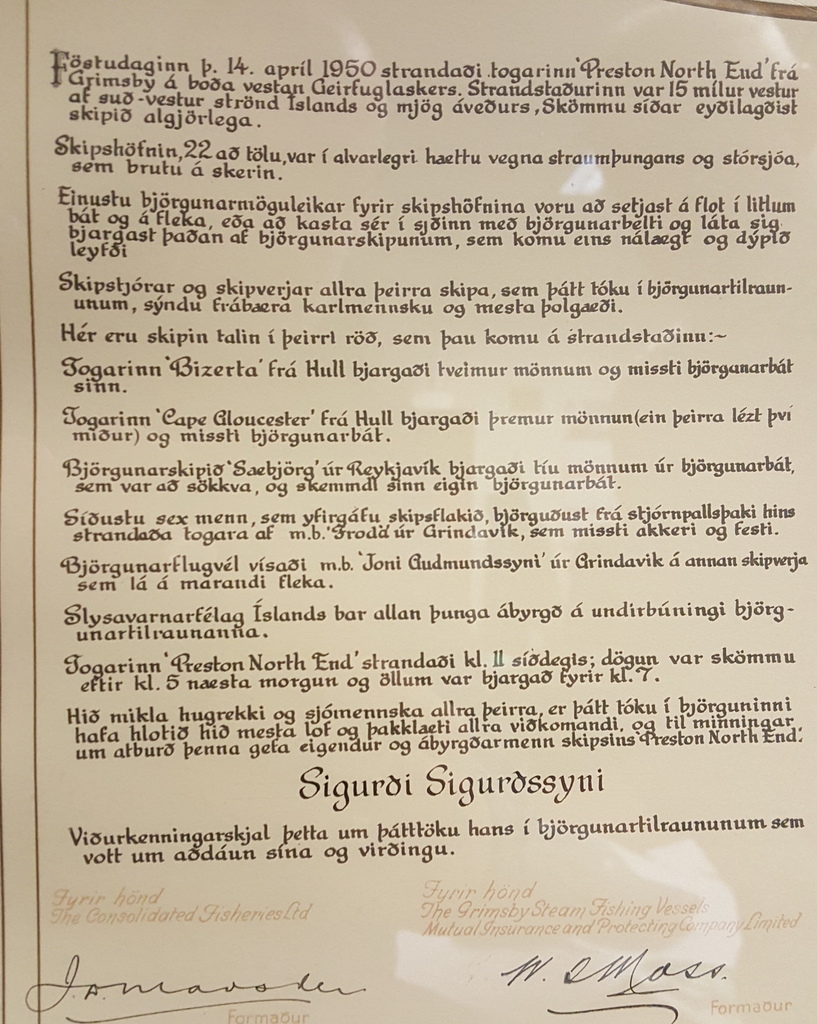 Föstudaginn þ. 14. apríl 1950 strandaði togarinn 'Preston North End' frá
Grimsby á boða vestan Geirfuglaskers. Strandstaðurinn var 15 mílur vestur
af suð-vestur strönd Íslands og mjög áveðurs, Skömmu síðar eyðilagðist
skipið algjörlega.
Skipshöfnin, 22 að tölu, var í alvarlegri hættu vegna straumþungans og stórsjóa,
sem brutu á skerin.
Einustu björgunarmöguleikar fyrir skipshöfnina voru að setjast á flot í litlum
bát og á fleka, eða að kasta sér í sjóinn með björgunarbelti og láta sig
bjargast þaðan af björgunarskipunum, sem komu eins nálægt og dýpið
leyfði
Skipstjórar og skipverjar allra þeirra skipa, sem þátt tóku í björgunartilraun-
unum, sýndu frábæra karlmennsku og mesta þolgæði.
Hér eru skipin talin í þeirri röð, sem þau komu á strandstaðinn:~
Togarinn 'Bizerta' frá Hull bjargaði tveimur mönnum og missti björganarbát
sinn.
Togarinn 'Cape Gloucester' frá Hull bjargaði þremur mönnun (ein þeirra lézt því
miður) og missti björgunarbát.
Björgunarskipið 'Saebjörg' úr Reykjavík bjargaði tíu mönnum úr björgunarbát,
sem var að sökkva, og skemmdi sinn eigin björgunarbát.
Síðustu sex menn, sem yfirgáfu skipsflakið, björguðust frá stjórnpallsþaki hins
strandaða togara af m.b. 'Froda' úr Grindavik, sem missti akkeri og festi.
Björgunarflugvél vísaði m.b. 'Joni Gudmundssyni' úr Grindavik á annan skipverja
sem lá á marandi fleka.
Slysavarnarfélag Íslands bar allan þunga ábyrgð á undirbúningi björg-
unartilraunanna.
Togarinn 'Preston North End' strandaði kl. 11 síðdegis; dögun var skömmu
eftir kl. 5 naesta morgun og öllum var bjargað fyrir kl. 7.
Hið mikla hugrekki og sjómennska allra þeirra, er þátt tóku í björguninni
hafa hlotið hið mesta lof og þakklaeti allra viðkomandi, og til minningar
um atburð þenna gefa eigendur og ábyrgðarmenn skipsins 'Preston North End'
Sigurði Sigurðssyni
Viðurkenningarskjal þetta um þátttöku hans í björgunartilraununum sem
vott um aðdáun sína og virðingu.
Fyrir hönd
The Consolidated Fisheries Ltd
Formaður
Fyrir hönd
The Grimsby Steam Fishing Vessels
Mutual Insurance and Protecting Company Limited
W. S Moss.
Formaður